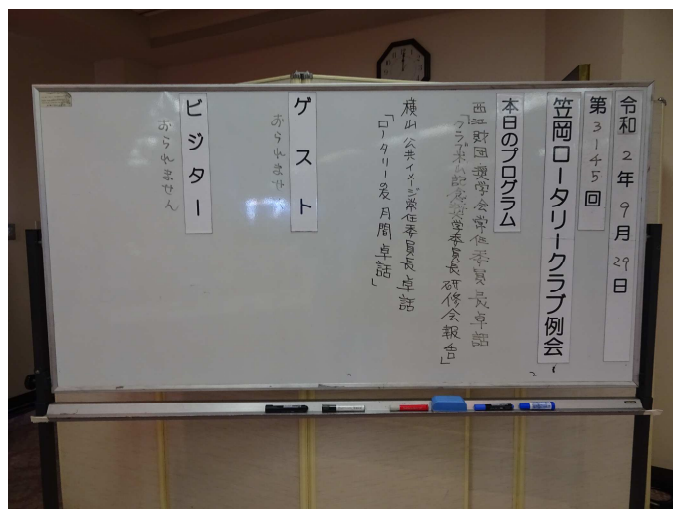 令和2年9月29日
第3145回
笠岡ロータリークラブ例会
本日のプログラム
西江財団奨学会常任委員長卓話
「クラブ米山記念奨学委員長研修会報告」
横山公共イメージ常任委員長卓話
「ロータリーの友月間卓話」
ゲスト
おられません
ビジター
おられません